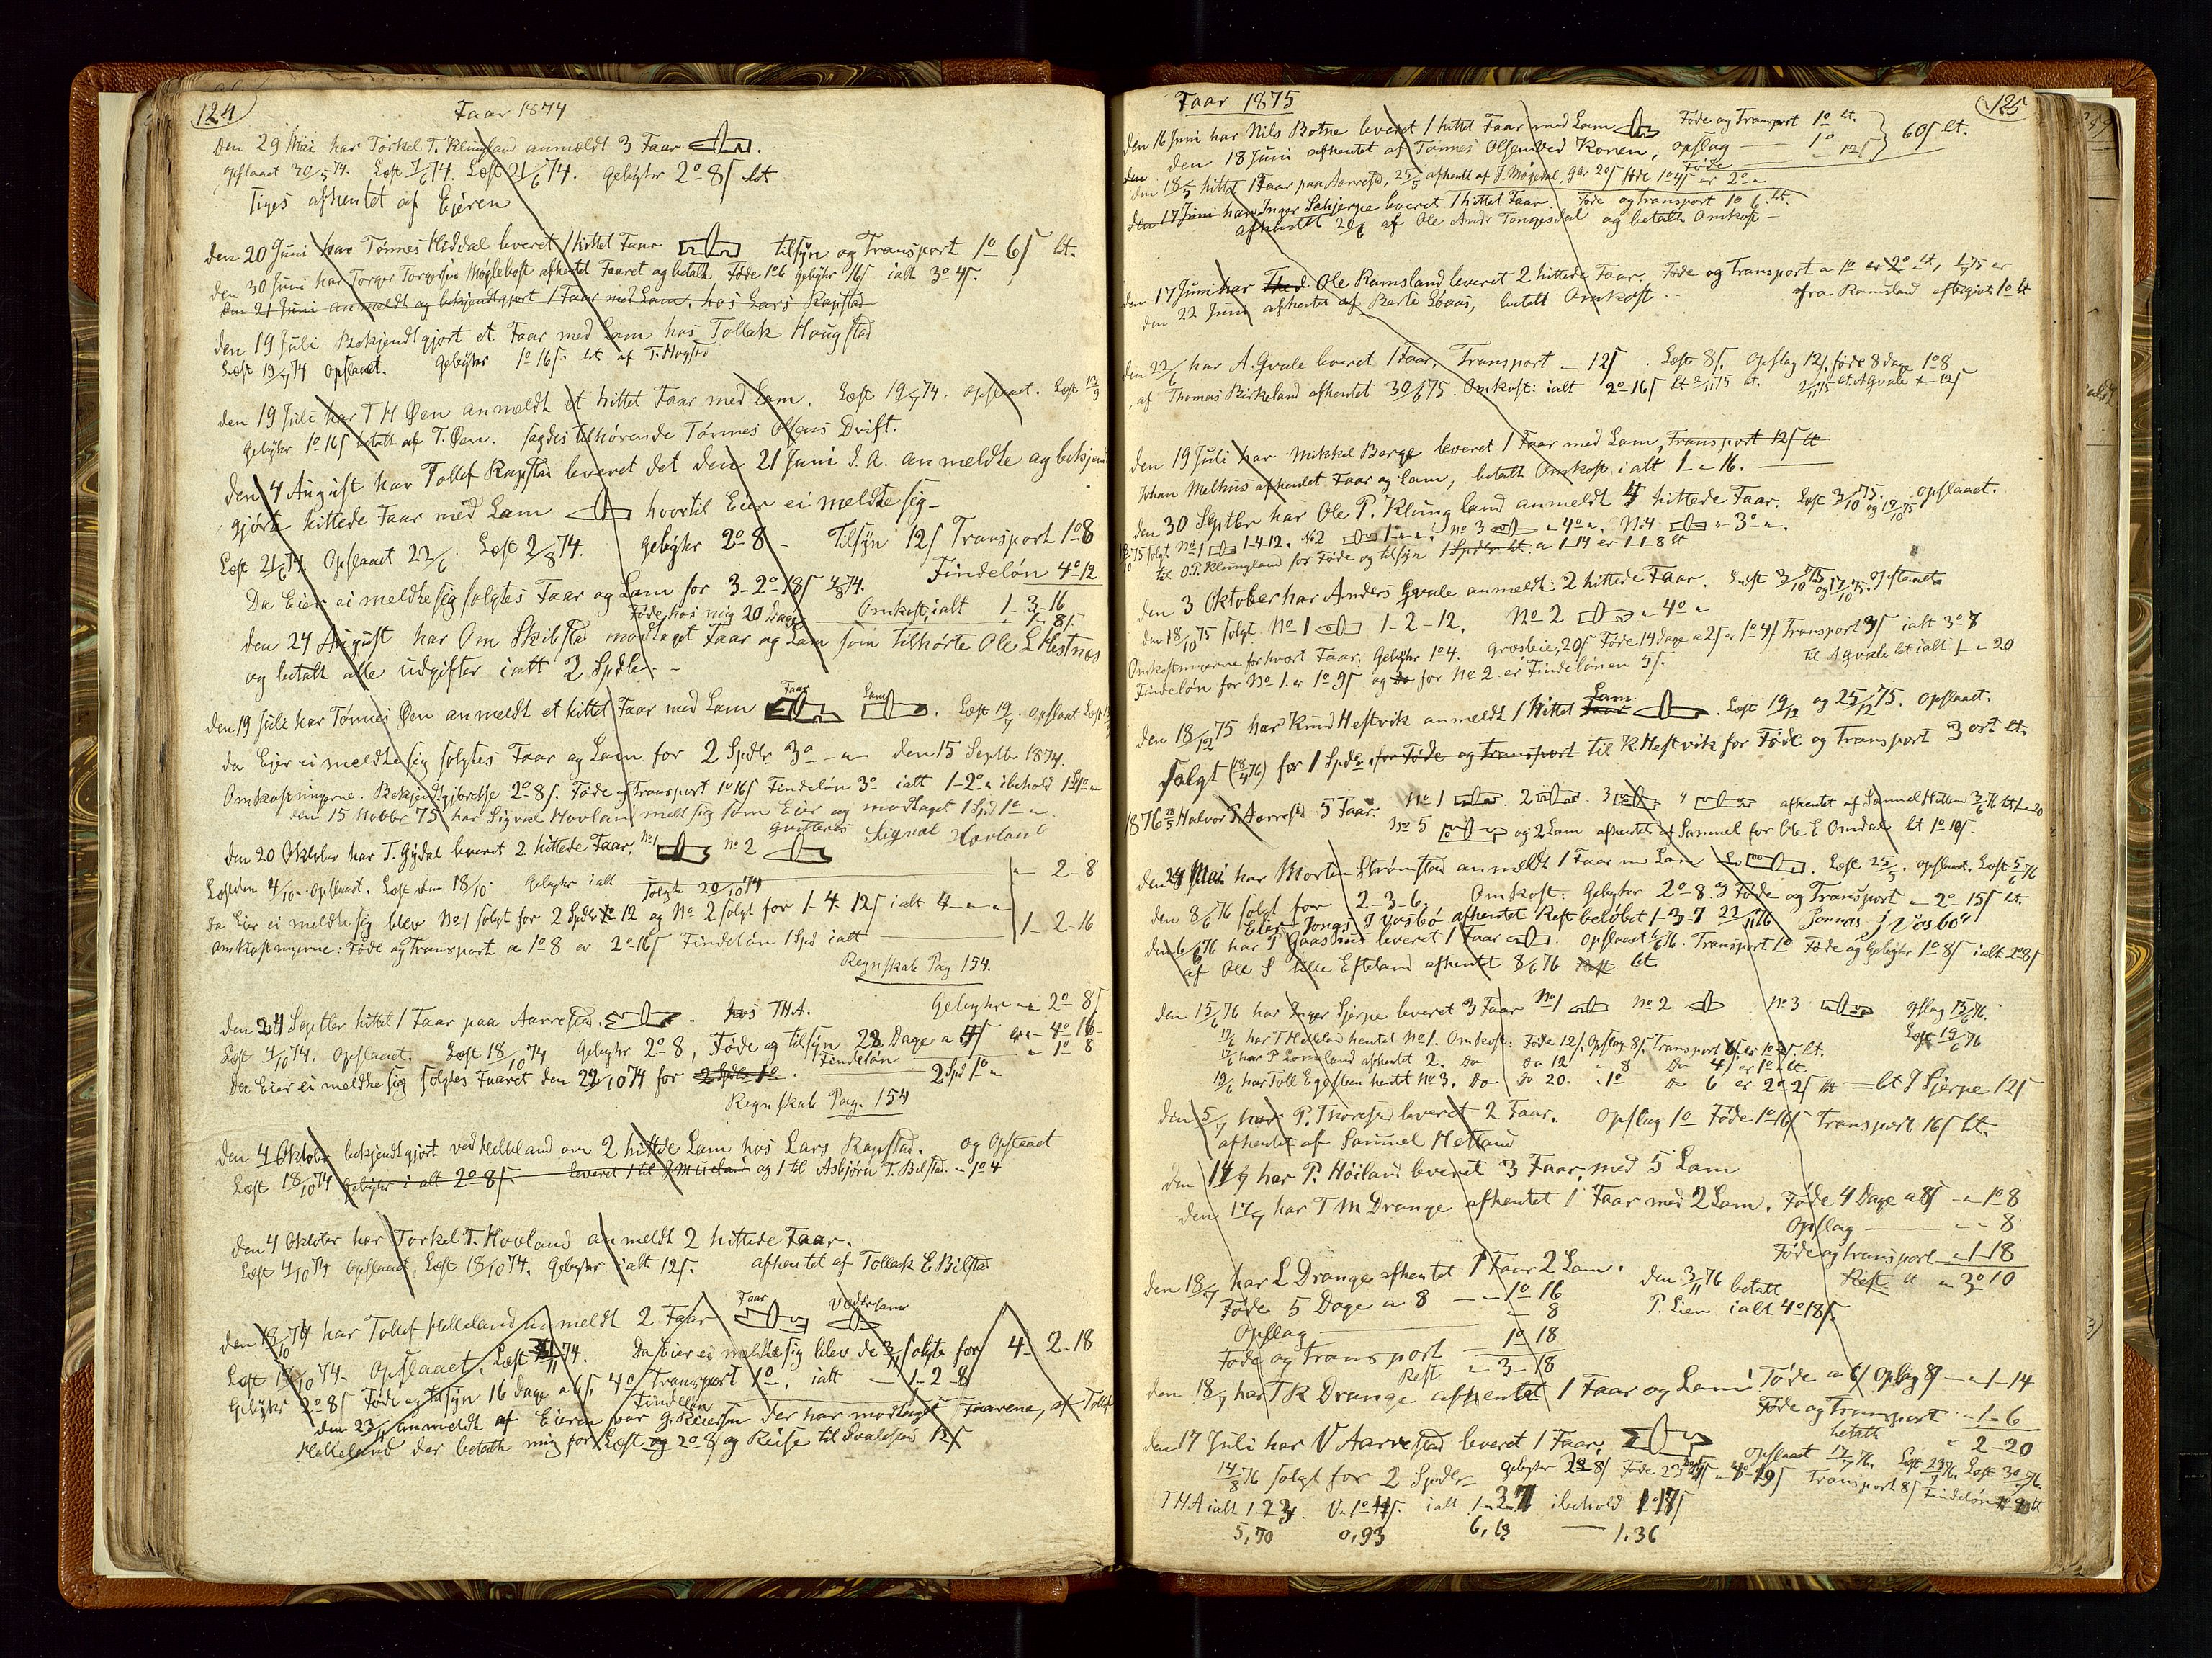 124
Faar 1874
Den 29 Mai har Torkel T. Klungland anmeldt 3 Faar.
opslaaet 30/5 74. Læst 7/6 74. Læst 21/6 74. Gebyhr 2º 8ſ bt
Siges afhentet af Eieren
den 20 Juni har Tønnes Middal leveret 1 hittet Faar tilsyn og Transport 1º 6ſ bt.
den 30 Juni har Torger Torgersen Møglebost afhentet Faaret og betalt Føde 1º6 Gebyhr 16ſ ialt 3º 4ſ.
den 21 Juni anmeldt og bekjendtgjort 1 Faar med Lam, hos Lars Rapstad
den 19 Juli Bekjendtgjort et Faar med Lam hos Tollak Hougstad
Læst 19/7 74 opslaaet. Gebyhr 1º 16ſ. bt af T. Hogstad
den 19 Juli har T H Øen anmeldt et hittet Faar med Lam. Læst 19/7 74. opslaaet. Læst 13/9
Gebyhr 1º 16ſ betalt af T. Øen. sagdes tilhørende Tønnes Olsens Drift.
den 4 August har Tollef Rapstad leveret det den 21 Juni d. A. anmeldte og bekjendt
gjorte hittede Faar med Lam hvortil Eier ei meldte sig
Læst 21/6 74. Opslaaet 22/6. Læst 2/8 74. Gebyhr 2º 8 Tilsyn 12ſ Transport 1º8
Findeløn 4º12
Da Eier ei meldte sig solgtes Faar og Lam for 3-2º-18ſ 4/8 74.
Føde hos mig 20 Dage Omkost. ialt 1-3-16
1-8ſ.
den 24 August har Om Skibstad modtaget Faar og Lam som tilhørte Ole L Hestnes
og betalt alle udgifter ialt 2 Spdlr.
Faar Lam
den 19 Juli har Tønnes Øen anmeldt et hittet Faar med Lam. Læst 19/7. opslaaet Læst
Da Eier ei meldte sig solgtes Faar og Lam for 2 Spdlr 3º den 15 Septbr 1874.
Omkostningerne. Bekjendtgjørelse 2º 8ſ. Føde og Transport 1º 16ſ Findeløn 3º ialt 1-2º ibehold 1Sp1º
den 15 Novbr 75 har Sigval Hovland meldt sig som Eier og modtaget 1 Spd 1º
qvitteres Sigval Hovland
den 20 Oktober har T. Gydal leveret 2 hittede Faar, No 1 No 2
Læst den 4/10 opslaaet. Læst den 18/10. Gebyhr ialt 2-8
solgte 20/10 74
Da Eier ei meldte sig blev No 1 solgt for 2 Spdlr 12 og No 2 solgt for 1-4-12ſ ialt 4
Omkostningerne: Føde og Transport a 1º8 er 2º16ſ Findeløn 1 Spd ialt 1-2-16
Regnskab Pag 154.
den 24 Septbr hittet 1 Faar paa Aarrestad. hos TH.A. Gebyhr 2º 8ſ
Læst 4/10 74. opslaaet. Læst 18/10 74 Gebyhr 2º 8, Føde og tilsyn 22 Dage a 4ſ er 4º 16
Findeløn 1º 8
Da Eier ei meldte sig solgtes Faaret den 22/10 74 for 2 Spd 1º
Regnskab Pag. 154
den 4 Oktober bekjendtgjort ved Helleland om 2 hittede Lam hos Lars Rapstad. og Opslaaet
Læst 18/10 74 Gebyhr i alt 2º 8ſ. leveret 1 til og 1 til Asbjørn T. Bilstad 1º4
den 4 Oktober har Torkel T. Hovland anmeldt 2 hittede Faar.
Læst 4/10 74 opslaaet. Læst 18/10 74. Gebyhr ialt 12ſ. afhentet af Tollak E Bilstad
Faar Væderlam
den 18/10 74 har Tollef Helleland anmeldt 2 Faar
Læst 18/10 74. opslaaet. Læst 1/11 74. Da Eier ei meldte sig blev de 3/11 solgte for 4-2-18
Gebyhr 2º 8ſ Føde og tilsyn 16 Dage a 6ſ. 4º Transport 1º. ialt 1-2-8
Findeløn
den 23/11 anmeldt af Eieren var G Reiersen der har modtaget Faarene, af Tollef
Helleland der betalte mig for Læst og 2º 8ſ og Reise til Svalestad 12ſ
125
Faar 1875
den 16 Juni har Nils Botne leveret 1 hittet Faar med Lam Føde og Transport 1º bt.
den 18 Juni afhentet af Tønnes Olsen ved Konen, opslag 1º 12ſ 60ſ bt.
den 18/5 hittet 1 Faar paa Aarrestad, 25/5 afhentet af J. Møgedal, Føde 1º4ſ er 2º
den 17 Juni har Inger Schjerpe leveret 1 hittet Faar. Føde og transport 1º 6 bt.
afhentet 20/6 af Ole Andr Tengesdal og betalte Omkost
den 17 Juni har Ole Ramsland leveret 2 hittede Faar. Føde og Transport a 1º er 2º bt, 1/7 75 er
fra Ramsland eftergivet 1º bt
den 22 Juni afhentet af Berte Loaas, betalt Omkost
den 22/6 har A. Gvale leveret 1 Faar. Transport 12ſ. Læst 8ſ. Opslag 12ſ. føde 8 dage 1º8
af Thomas Birkeland afhentet 30/6 75. Omkost: ialt 2º-16ſ bt 2/11 75 bt. 2/11 75 bt. A Gvale 12ſ
den 19 Juli har Mikkel Berge leveret 1 Faar med Lam, Transport 12ſ bt
Johan Melhus afhentet Faar og Lam, betalt Omkost. ialt 1-16.
den 30 Septbr har Ole P. Klungland anmeldt 4 hittede Faar. Læst 3/10 75. og 17/10 75 opslaaet.
18/10 75 solgt No 1 1-4-12. No 2 1. No 3 4º. No 4 3º
til O. P. Klungland for Føde og tilsyn 1 Spdlr bt. a 1-14 er 1-1-8 bt
den 3 Oktober har Anders Gvale anmeldt 2 hittede Faar. Læst 3/10 75 og 17/10 75. opslaaet
den 18/10 75 solgt. No 1 1-2-12. No 2 4º
Omkostningerne for hvert Faar. Gebyhr 1º4. Græsleie, 20ſ Føde 14 dage a 2ſ er 1º4ſ Transport 3ſ ialt 3º 7
Findeløn for No 1. er 1º 9ſ og for No 2. er Findelønen 5ſ. til A Gvale bt ialt 1 20
den 18/12 75 har Knud Hestvik anmeldt 1 hittet Faar Lam. Læst 19/12 og 25/12 75. opslaaet.
Solgt (18/4 76) for 1 Spdr, for Føde og transport til K. Hestvik for Føde og Transport 3 ort bt.
1876 25/5 Halvor T Aarrestad 5 Faar. No 1 2 3 4 afhentet af Samuel Hetland 3/6 76
No 5 og 2 Lam afhentet af Samuel for Ole E Omdal bt 1º 10ſ.
den 24 Mai har Morten Strømstad anmeldt 1 Faar m Lam. Læst 25/5. opslaaet. Læst 5/6 76
den 8/6 76 solgt for 2-3-6. Omkost: Gebyhr 2º 8. Føde og Transport 2º 15ſ bt.
Eier Jonas J Værbø afhentet Restbeløbet 1-3-7 22/11 76
den 6/6 76 har P Gaasens leveret 1 Faar. Opslaaet 6/6 76. Transport 1º Føde og Gebyhr 1º 8ſ ialt 2º8ſ
af Ole S Lille Efteland afhentet 8/6 76 bt
den 15/6 76 har Inger Sjerpe leveret 3 Faar No 1 No 2 No 3 opslag 15/6 76.
17/6 har T Helleland hentet No 1. Omkost: Føde 12ſ. Opslag 8ſ. Transport 6ſ er 1º 2ſ. bt. Læst 19/6 76
17/6 har P Lomeland afhentet 2. Do Do 12 8 Do 4ſ er 1º bt
19/6 har Toll Egesteen hentet No 3. Do Do 20. 1º Do 6 er 2º 2ſ bt bt J Sjerpe 12ſ
den 5/7 har P. Thoresen leveret 2 Faar. Opslag 1º Føde 1º 16ſ Transport 16ſ bt.
afhentet af Samuel Hetland
den 14/7 har P. Høiland leveret 3 Faar med 5 Lam
den 17/7 har T M Drange afhentet 1 Faar med 2 Lam. Føde 4 Dage a 8ſ 1º 8
Opslag 8
Føde og transport 1-18
Rest bt 3º 10
den 18/7 har L Drange afhentet 1 Faar 2 Lam.
Føde 5 Dage a 8 1º 16
Opslag 8
Føde og transport 1º 18
Rest 3-18
den 3/11 76 betalt
P. Lien ialt 4º18ſ.
den 18/7 har T K Drange afhentet 1 Faar og Lam Føde a 6ſ Oplag 8ſ 1-14
Føde og transport 1-6
betalt 2-20
den 17 Juli har V Aarrestad leveret 1 Faar. opslaaet 17/7 76. Læst 23/7 76. Læst 30/7 76.
14/8 76 solgt for 2 Spdlr Gebyhr 2º 8ſ Føde Transport 8ſ Findeløn
T.H.A ialt 1-2-3. V. 1º 4ſ. ialt 1-3-7 ibehold 1º 17ſ
5,70 0,93 6,63 1,36